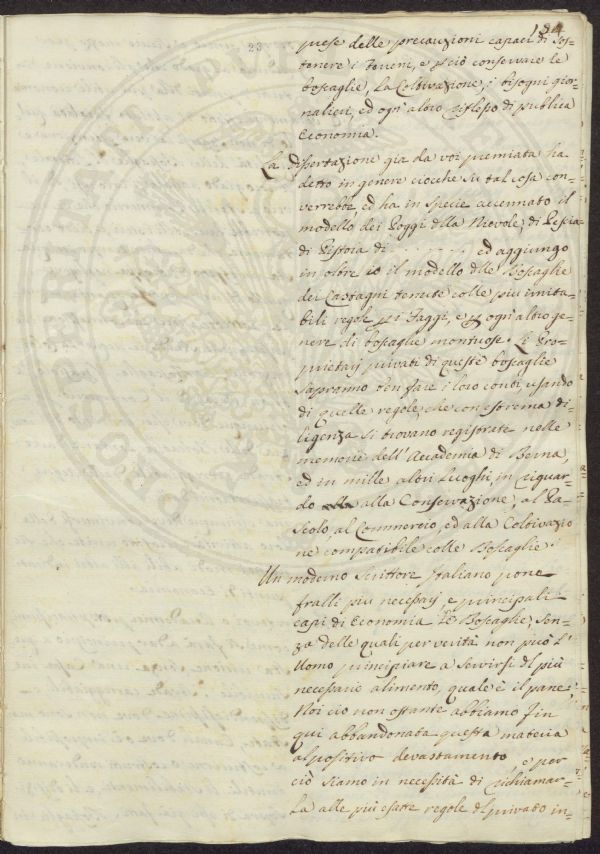 23
124
prese delle precauzioni capaci di Sos-
tenere i Terreni, e p ciò conservare le
boscaglie, La Coltivazione, i bisogni gior-
nalieri, ed ogn'altro riflesso di publica
Economia.
La dissertazione già da voi premiata ha
detto in genere ciocche su tal cosa con-
verrebbe, ed ha in specie accennato il
modello dei Poggi dlla Nievole, di Pescia
di Pistoia di . . . . . . ed aggiungo
in oltre io il modello dlle Boscaglie
dei Castagni tenute colle più imita-
bili regole p i Faggi, e p ogn'altro ge-
nere di boscaglie montuose. Li Pro-
prietarj privati di queste boscaglie
sapranno ben fare i loro conti, usando
di quelle regole, che con estrema di-
ligenza si trovano registrate nelle
memorie dell'Accademia di Berna,
ed in mille altri Luoghi, in riguar-
do alla Conservazione, al Pa-
scolo, al Commercio, ed alla Coltivazio
ne, compatibile colle Boscaglie.
Un moderno Scrittore Italiano pone
fralli più necessarj, e principali
capi di Economia le Boscaglie, Sen-
za delle quali per verità non può l'
Uomo principiare a servirsi dl più
necessario alimento, quale è il pane;
Noi ciò non ostante abbiamo fin
qui abbandonata questa materia
al positivo devastamento, e per
ciò siamo in necessità di richiamar-
La alle più esatte regole dl privato in-